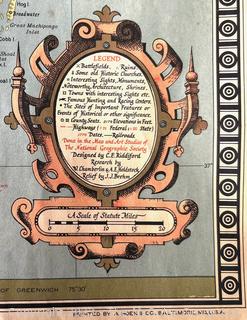 Hog I.
Broadwater
Great Machipongo
Inlet
Cobb I.
LEGEND
Battlefields. Ruins
Some old Historic Churches.
Interesting Sights, Monuments,
Noteworthy Architecture, Shrines.
Towns with interesting Sights etc.
Famous Hunting and Racing Centers.
The Sites of Important Features or
Events of Historical or other significance.
County Seats. Elevations in Feet.
Highways (Federal State)
Dates. Railroads.
Done in the Map and Art Studios of
The National Geographic Society
Designed by C.E. Riddiford
Research by
W. Chamberlin & A.E. Holdstock
Relief by J.J. Brehm
37°
A Scale of Statute Miles
0 5 10 15 20
OF GREENWICH 75°30'
PRINTED BY A. HOEN & CO. BALTIMORE, MD., U.S.A.